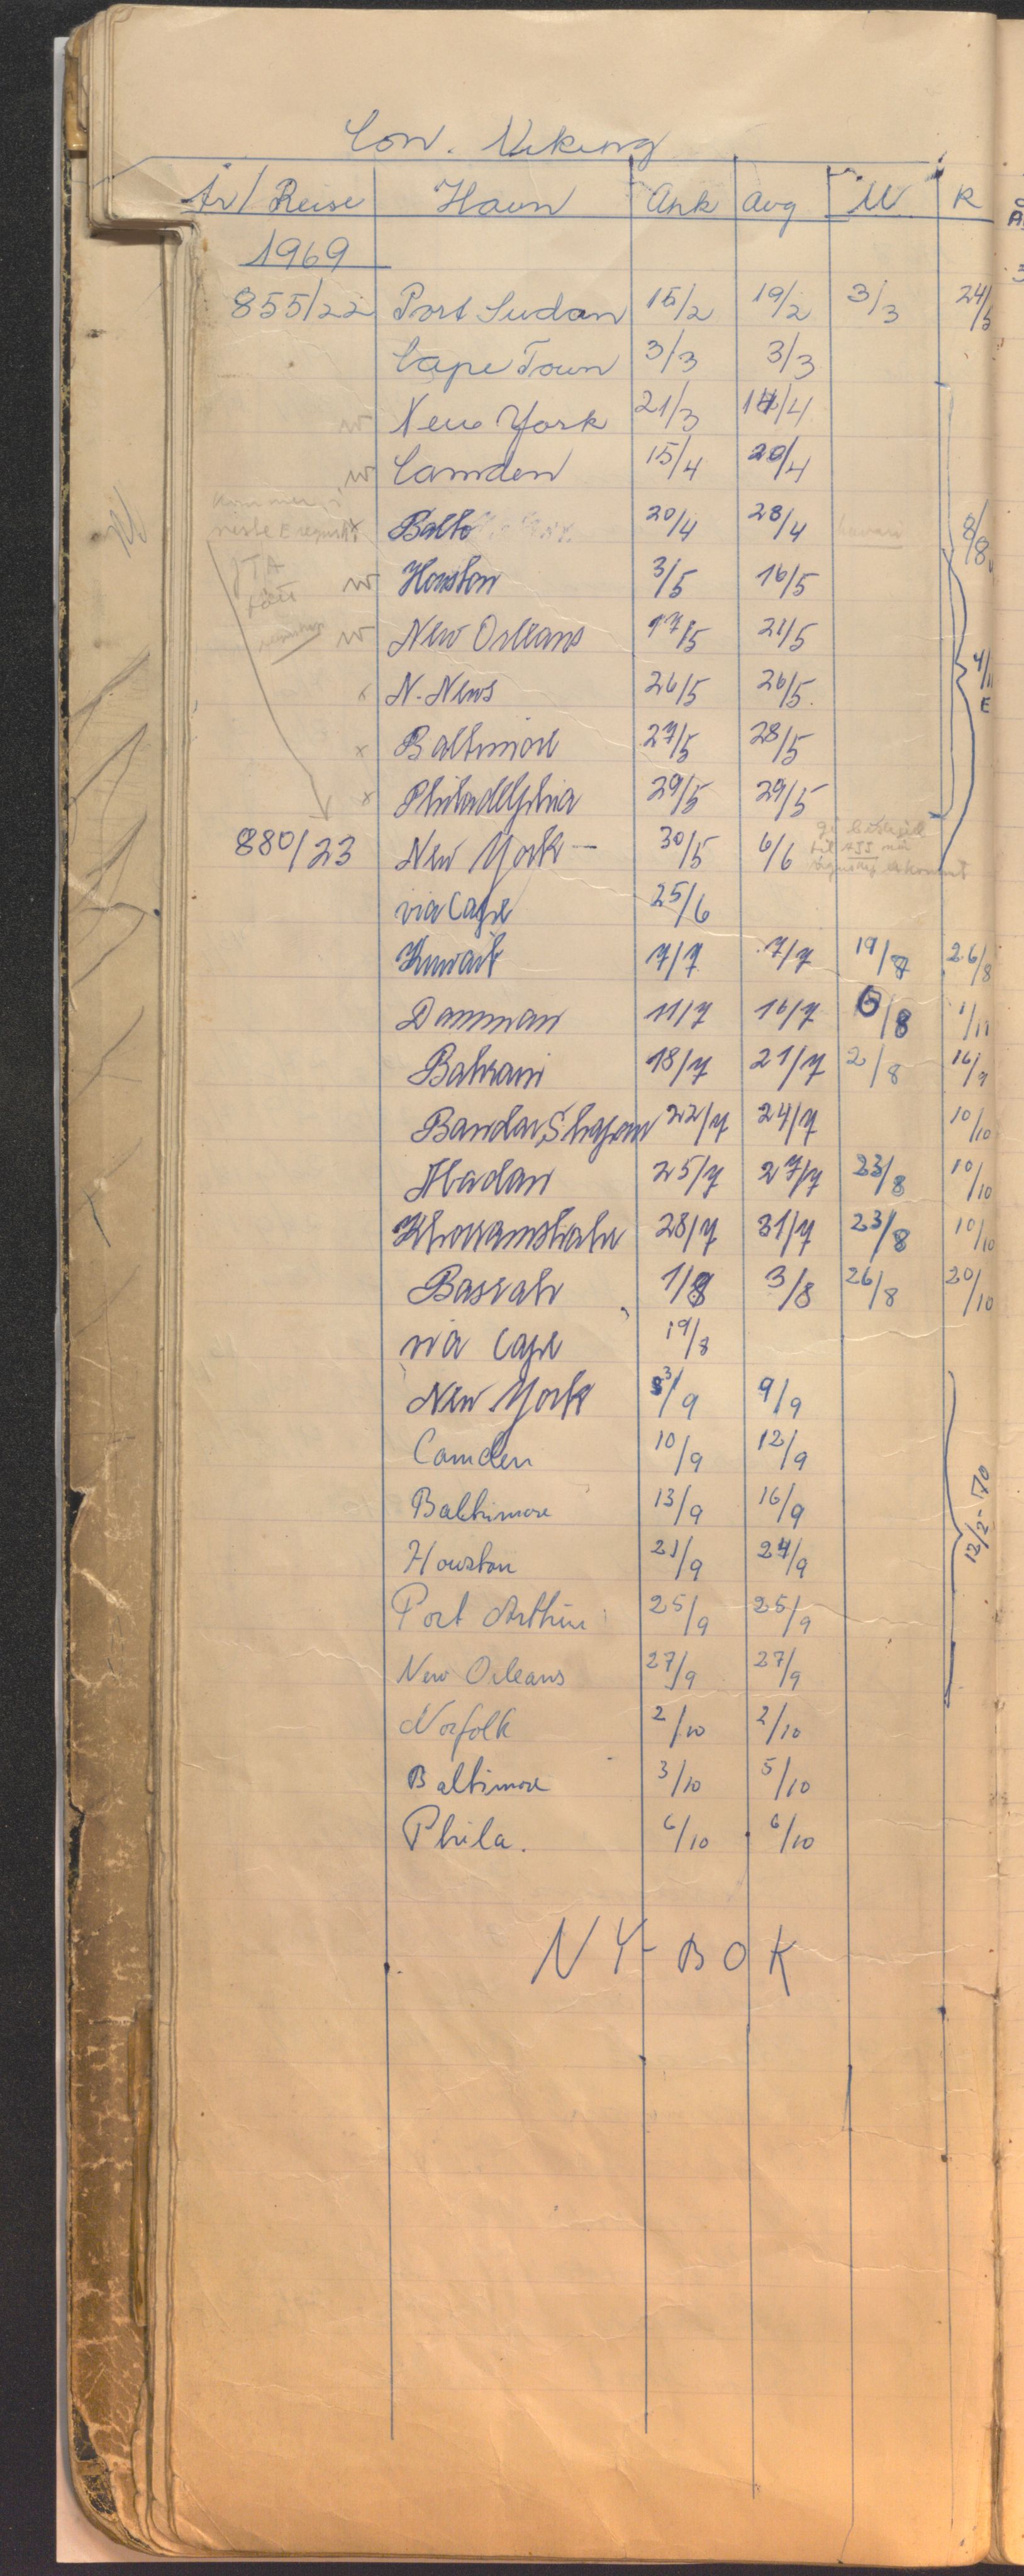 Con. Viking
År/Reise Havn Ank Avg M R
1969
855/22 Port Sudan 15/2 19/2 3/3 24/3
Cape Town 3/3 3/3
w New York 21/3 14/4
w Camden 15/4 20/4
Kommer i
neste E regnsk x Balto 20/4 28/4 8/8
w Houston 3/5 16/5
w New Orleans 17/5 21/5
x N. News 26/5 26/5. 4/11
E
x Baltimore 27/5 28/5
x Philadelphia 29/5 29/5
880/23 New York — 30/5 6/6
via Cape 25/6
Kuwait 7/7 7/7 19/8 26/8
Damman 11/7 16/7 6/8 1/11
Bahrain 18/7 21/7 2/8 16/9
Bandar Shapour 22/7 24/7 10/10
Abadan 25/7 27/7 23/8 10/10
Khorramshahr 28/7 31/7 23/8 10/10
Basrah 1/8 3/8 26/8 20/10
via Cape 19/8
New York 3/9 9/9
Camden 10/9 12/9
Baltimore 13/9 16/9
Houston 21/9 24/9 12/2-70
Port Arthur 25/9 25/9
New Orleans 27/9 27/9
Norfolk 2/10 2/10
Baltimore 3/10 5/10
Phila. 6/10 6/10
NY-BOK